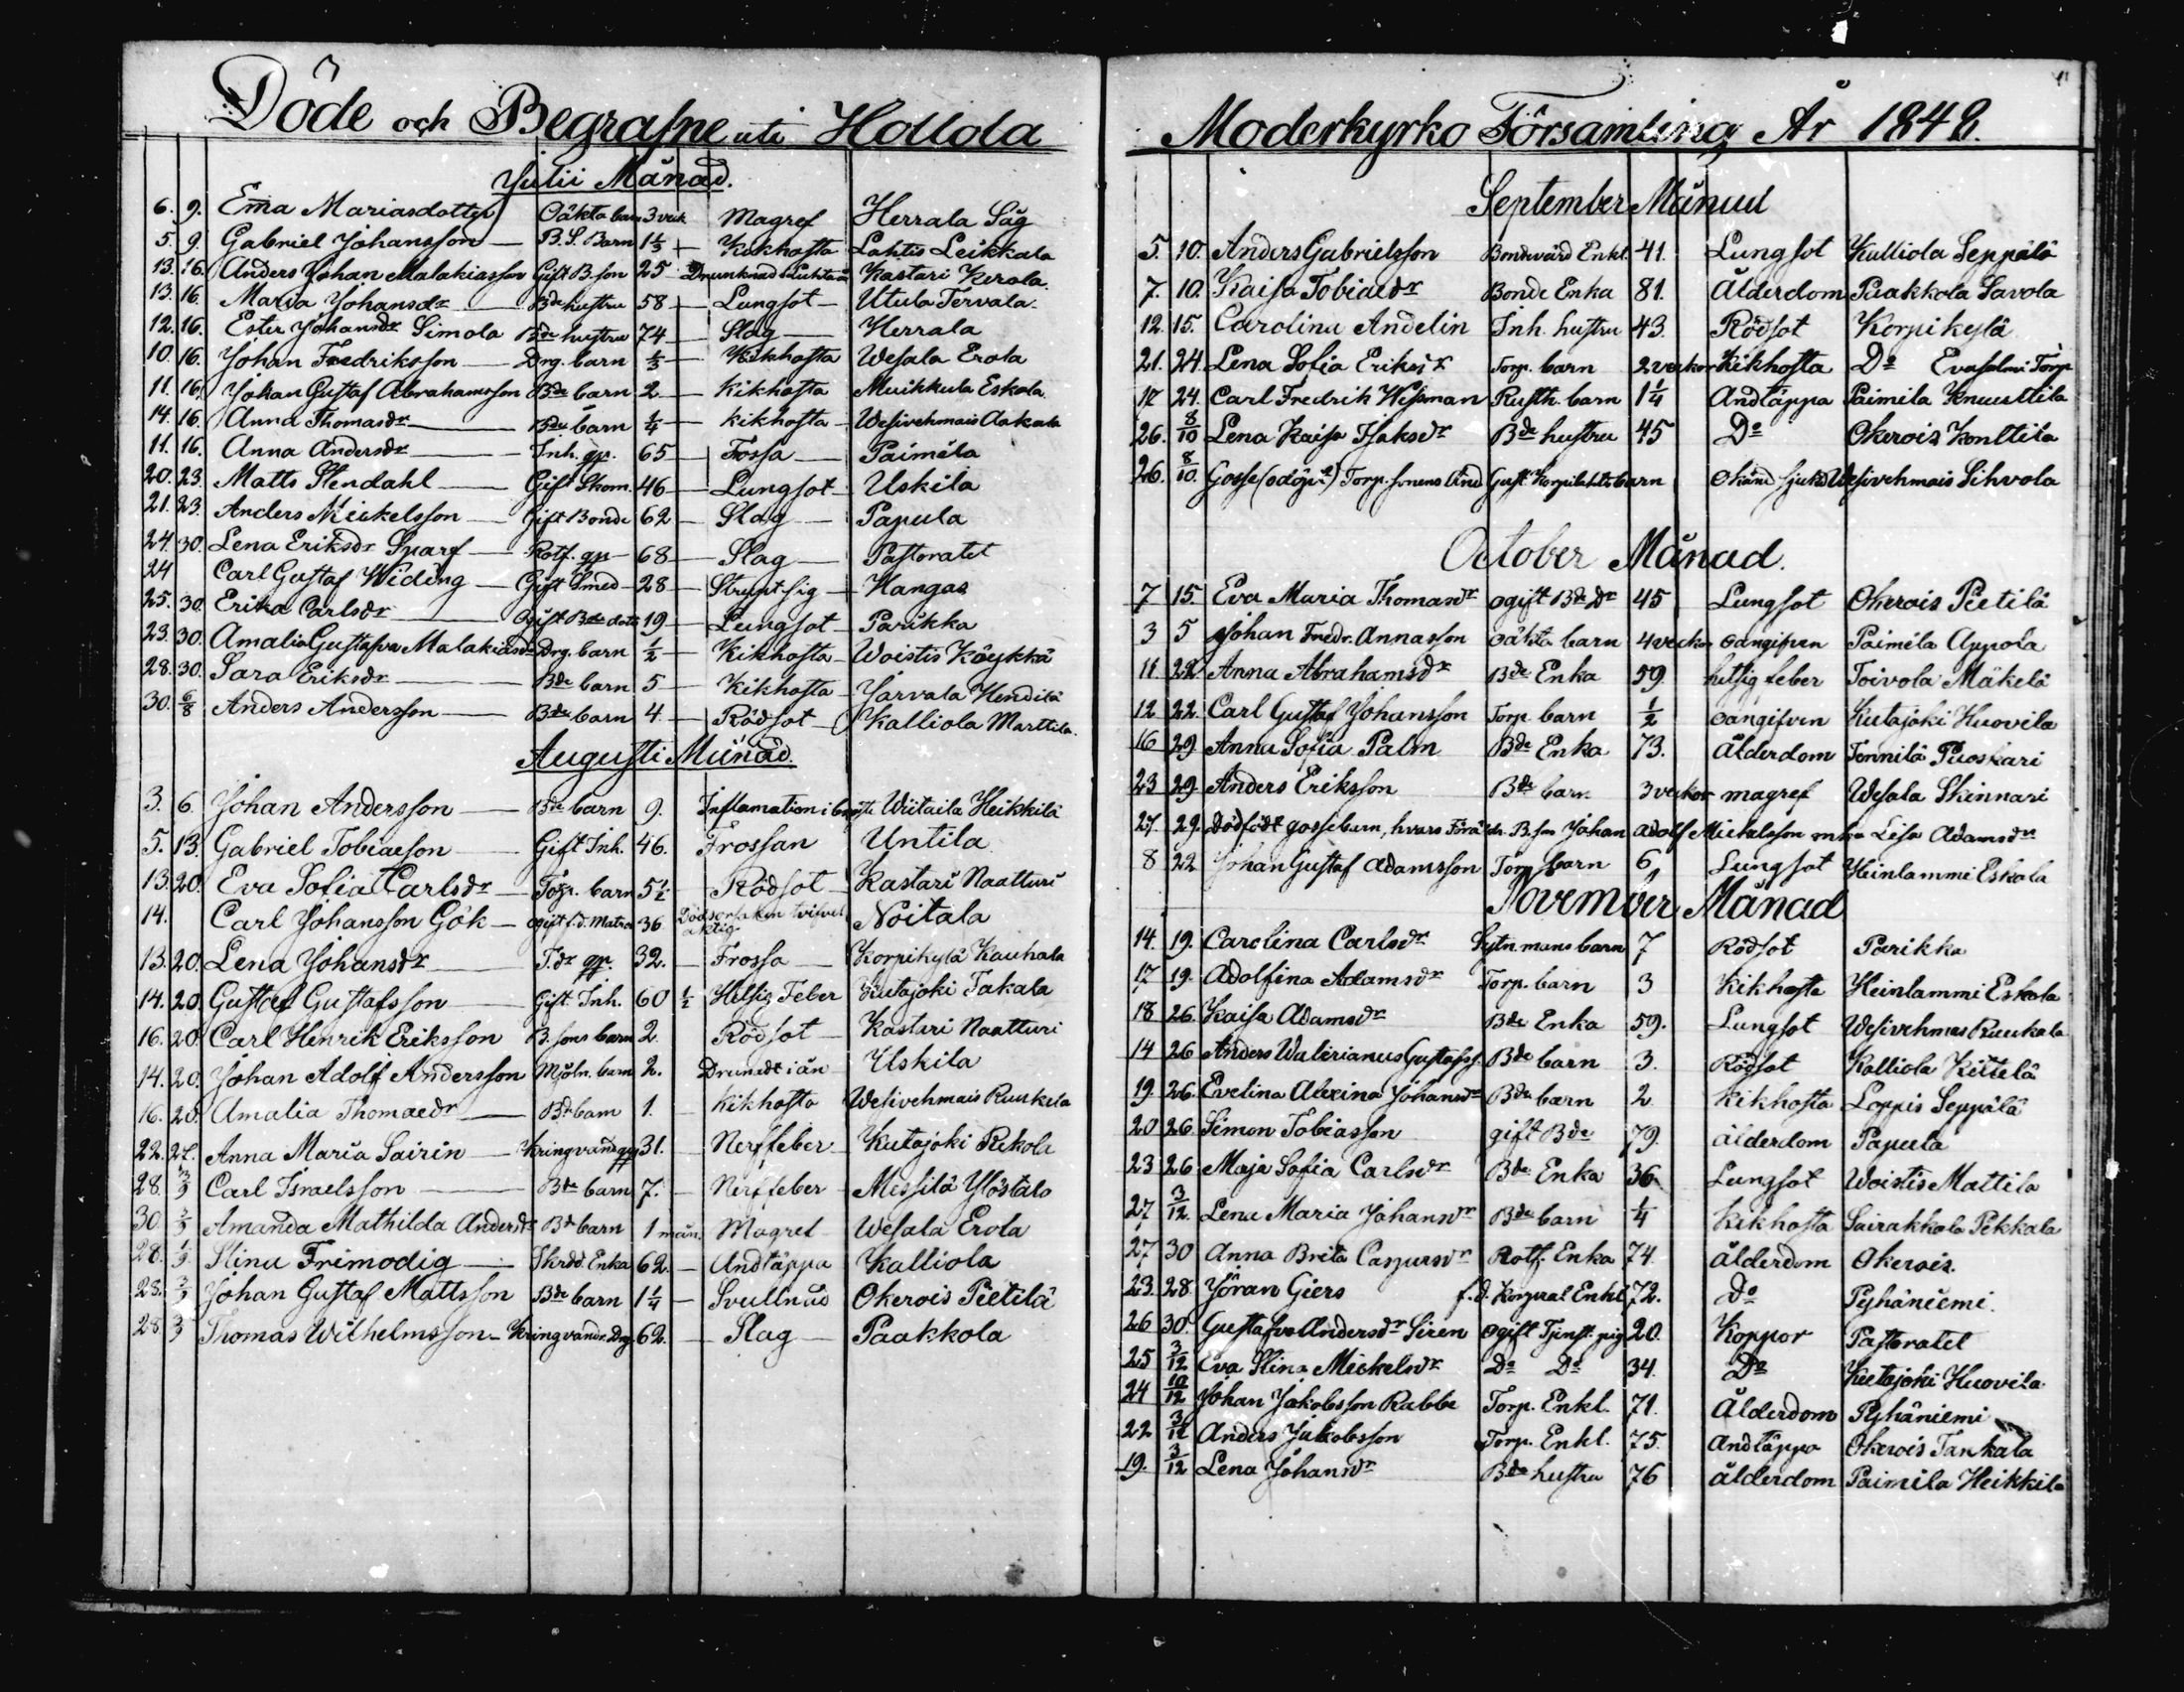 Döde och Begrafne uti Hollola
Julii Månad.
6. 9. Ema Mariasdotter Oäkta barn 3 veck Magref Herrala Såg
5. 9. Gabriel Johansson B.S. Barn 1 1/3 Kikhosta Lahtis Leikkala
13. 16. Anders Johan Malakiasson Gift B. son 25 Drunknad Kastari Kerola.
13. 16. Maria Johansdr Bde hustru 58 Lungsot Utula Tervala.
12. 16. Ester Johansdr Simola Bde hustru 74 Slag Herrala
10. 16. Johan Fredriksson Drg. barn 1/3 Kikhosta Wesala Erola
11. 16. Johan Gustaf Abrahamsson Bde barn 2 Kikhosta Muikkula Eskola.
14. 16. Anna Thomasdr Bde barn 1/4 kikhosta Wesivehmais Aakala
11. 16. Anna Andersdr Inh. gp. 65 Fossa Paimela
20. 23. Matts Stendahl Gift Skom. 46 Lungsot Uskila
21. 23. Anders Mickelsson Gift Bonde 62 Slag Papula
24. 30. Lena Eriksdr Sparf Rotf. gp 68 Slag Pastoratet
24 Carl Gustaf Widing Gift Smed 28 Hangas
25. 30. Erika Carlsdr Ogift Bde dotr 19 Lungsot Parikka
23. 30. Amalia Gustafva Malakiasdr Drg. barn 1/2 Kikhosta Woistis Köykkä
28. 30. Sara Eriksdr Bde barn 5 Kikhosta Jarvala Hendilä
30. 6/8 Anders Andersson Bde barn 4 Rödsot Kalliola Marttila.
Augusti Månad.
3. 6 Johan Andersson Bde barn 9. Inflamation i bröstet Wiitaila Heikkilä
5. 13. Gabriel Tobiaeson Gift Inh. 46. Frossan Untila
13. 20. Eva Sofia Carlsdr Torp. barn 5 1/2 Rödsot Kastari Naatturi
14. Carl Johansson Gök ogift f.d. Matros 36 Dödsorsaken tvifvelaktig Noitala
13. 20. Lena Johansdr T.dr gp. 32. Frossa Korpikylä Kauhala
14. 20. Gustaf Gustafsson Gift Inh. 60 1/2 Hetsig Feber Kutajoki Takala
16. 20. Carl Henrik Eriksson B. sons barn 2. Rödsot Kastari Naatturi
14. 20. Johan Adolf Andersson Mjöln. barn 2. Drunadt i ån Uskila
16. 20. Amalia Thomaedr Bde barn 1. Kikhosta Wesivehmais Ruuskela
22. 27. Anna Maria Sairin Kringvand. gp 31. Nerffeber Kutajoki Rekola
28. 3/9 Carl Israelsson Bde barn 7. Nerffeber Messilä Ylöstalo
30. 3/9 Amanda Mathilda Andersdr Bde barn 1 mån. Magref Wesala Erola
28. 3/9 Stina Frimodig Skrdd. Enka 62. Andtäppa Kalliola
28. 3/9 Johan Gustaf Mattsson Bde barn 1 1/4 Svullnad Okerois Pietilä
28 3/9 Thomas Wilhelmsson Kringvandr. Drg 62. Slag Paakkola
Moderkyrko Församling År 1848.
September Månad
5. 10. Anders Gabrielsson Bondevärd Enkl. 41. Lungsot Kalliola Seppälä
7. 10. Kaisa Tobiaedr Bonde Enka 81. Ålderdom Paakkola Savola
12. 15. Carolina Andelin Inh. hustru 43. Rödsot Korpikylä
21. 24. Lena Sofia Eriksdr Torp. barn 2 veckor Kikhosta Do Evasalmi Torp
17 24. Carl Fredrik Wissman Rusth. barn 1 1/4 Andtäppa Paimila Knuuttila
26. 8/10 Lena Kaisa Isaksdr Bde hustru 45 Do Okerois Konttila
26. 8/10. Gosse (odöpt) Torp. sonens And. Gust. Korpilahti barn Okänd sjukd Wesivehmais Sihvola
October Månad.
7 15. Eva Maria Thomasdr ogift Bde Dr 45 Lungsot Okerois Pietilä
3 5 Johan Fredr. Annasson oäkta barn 4 veckor oangifven Paimela Appola
11. 22 Anna Abrahamsdr Bde Enka 59. hetsig feber Toivola Mäkelä
12 22. Carl Gustaf Johansson Torp barn 1/2 oangifven Kutajoki Huovila
16 29 Anna Sofia Palm Bde Enka 73. ålderdom Tennilä Puoskari
23 29. Anders Eriksson Bde barn 3 veckor magref Wesala Skinnari
27. 29. Dödfödt gossebarn, hvars Föräldr. B. son Johan Adolf Mickelsson och Lisa Adamsdr
8 22 Johan Gustaf Adamsson Torp barn 6 Lungsot Heinlammi Eskola
November Månad
14. 19. Carolina Carlsdr Lytn. mans barn 7 Rödsot Parikka
17 19. Adolfina Adamsdr Torp. barn 3 Kikhosta Heinlammi Eskola
18 26. Kaisa Adamsdr Bde Enka 59. Lungsot Wesivehmas Ruukala
14 26 Anders Walerianus Gustafss. Bde barn 3. Rödsot Kalliola Kettelä
19. 26. Evelina Alexina Johansdr Bde barn 2 Kikhosta Loppis Seppälä
20 26. Simon Tobiasson gift Bde 79. ålderdom Papula
23 26 Maja Sofia Carlsdr Bde Enka 36. Lungsot Woistis Mattila
27 3/12 Lena Maria Johansdr Bde barn 1/4 Kikhosta Sairakkala Pekkala
27 30 Anna Brita Caspersdr Rotf. Enka 74 ålderdom Okerois.
23. 28. Jöran Giers f.d. Korpral Enkl 72. Do Pyhäniemi.
26 30. Gustafva Andersdr Siren ogift Tjenst. pig 20. Koppor Pastoratet
25 3/12 Eva Stina Mickelsdr Do Do 34. Do Kutajoki Huovila.
24 10/12 Johan Jakobsson Rabbe Torp. Enkl. 71. Ålderdom Pyhäniemi
22 3/12 Anders Jakobsson Torp. Enkl. 75. andtäppa Okerois Tankala
19. 3/12 Lena Johansdr Bde hustru 76 ålderdom Paimela Heikkilä